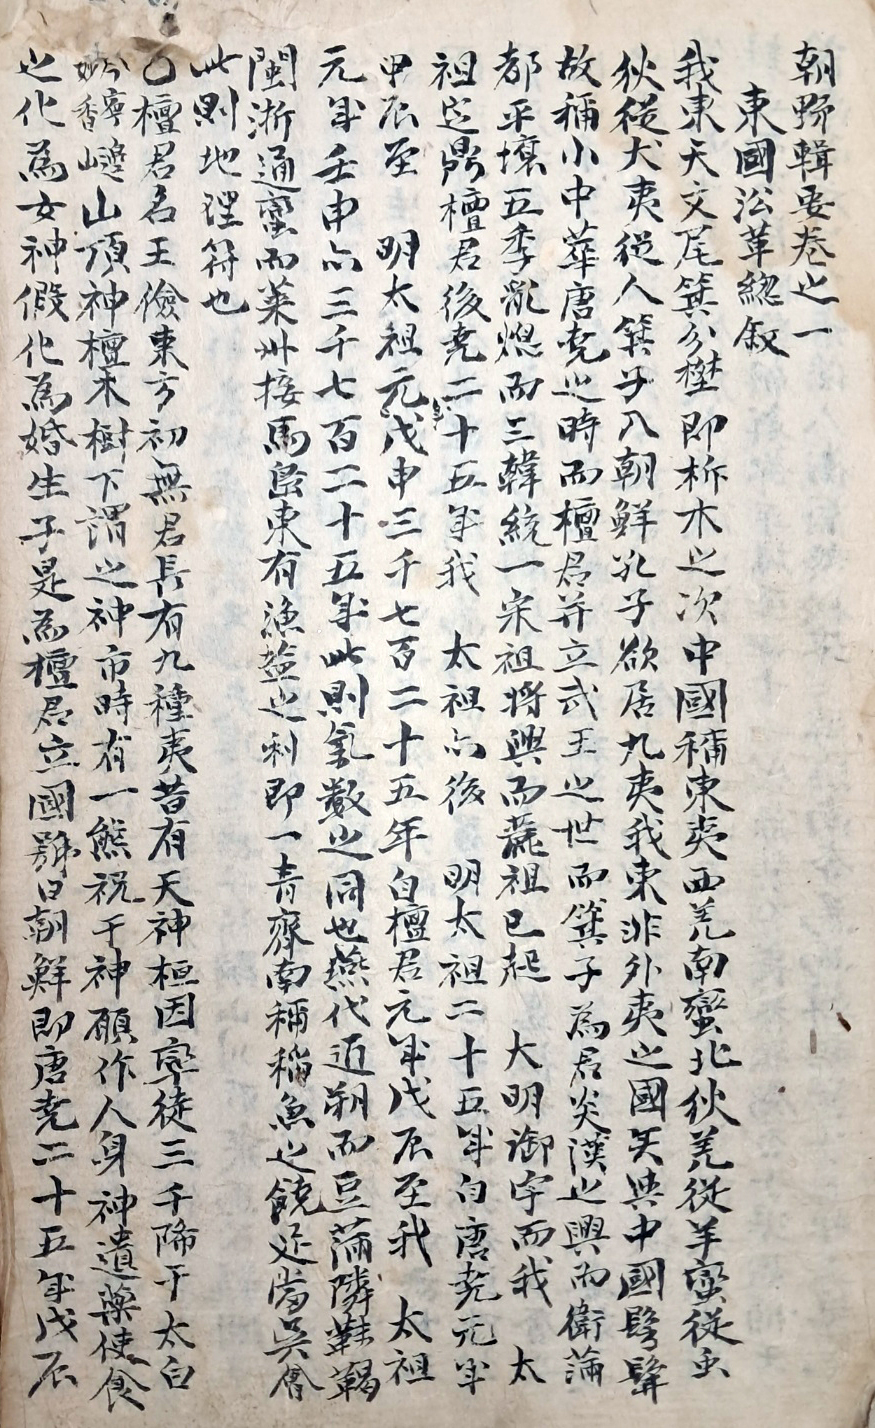 朝野輯要卷之一
東國沿革總叙
我東天文尾箕分野即析木之次中國稱東夷西羌南蠻北狄羌從羊蠻從虫
狄從犬夷從人箕子入朝鮮孔子欲居九夷我東非外夷之國矣與中國髣髴
故稱小中華唐堯之時而檀君并立武王之世而箕子為君炎漢之興而衛滿
都平壤五季亂熄而三韓統一宋祖將興而麗祖已起 大明御宇而我 太
祖定鼎檀君後堯二十五年我 太祖亦後 明太祖二十五年自唐堯元年
甲辰至 明太祖元年戊申三千七百二十五年自檀君元年戊辰至我 太祖
元年壬申亦三千七百二十五年此則氣數之同也燕代近朔而豆滿隣靺鞨
閩浙通蠻而萊州接馬島東有漁盐之利即一青齊南稱稻魚之饒足當吳會
此則地理符也
○檀君名王儉東方初無君長有九種夷昔有天神桓因率徒三千降于太白
妙香山頂神檀木樹下謂之神市時有一熊祝于神願作人身神遺藥使食
之化為女神假化為婚生子是為檀君立國號曰朝鮮即唐堯二十五年戊辰